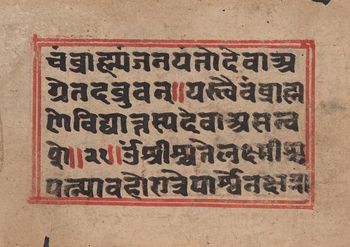 चंब्राह्म्यंजनयंतोदेवाअ
ग्रेतदब्रुवन्॥यस्त्वैवंब्राह्म
णोविद्यात्तस्यदेवाअसन्व
शे॥२१॥श्रीश्चतेलक्ष्मीश्च
पत्न्यावहोरात्रेपार्श्वेनक्षत्रा